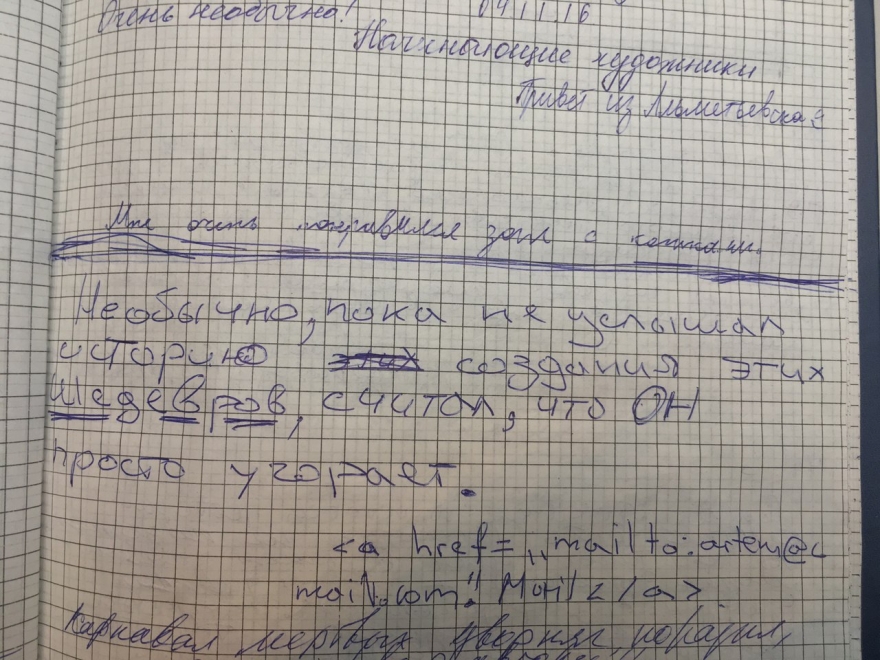 Очень необычно!
04.11.16
Начинающие художники
Привет из Альметьевска
Мне очень понравился зал с
Необычно, пока не услышал
историю этих создания этих
шедевров, считал, что ОН
просто угорает.
<a href= „mailto:artem@c
mail.com" Mail </a>
Карнавал мертвых